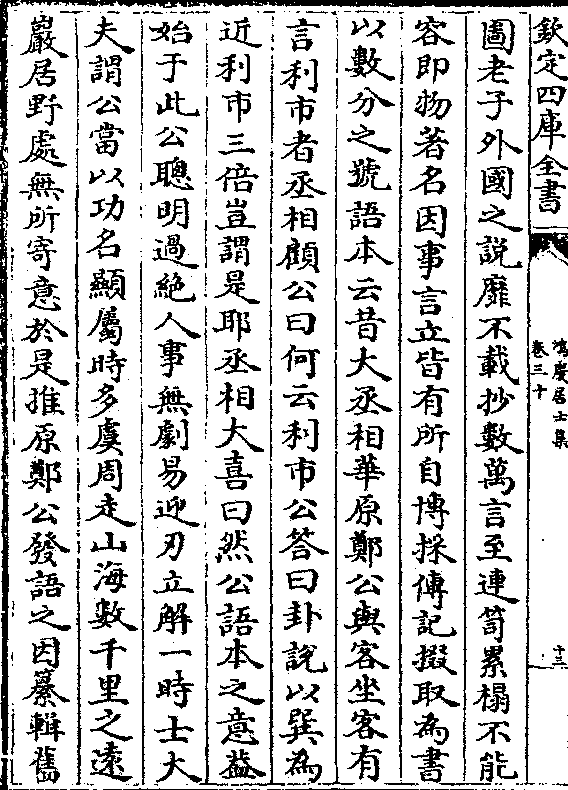 欽定四庫全書
鴻慶居士集
卷三十
十三
圖老子外國之說靡不載抄數萬言至連笥累榻不能
容即物著名因事言立皆有所自博採傳記掇取為書
以數分之號語本云昔大丞相華原鄭公與客坐客有
言利市者丞相顧公曰何云利市公答曰卦說以巽為
近利市三倍豈謂是耶丞相大喜曰然公語本之意葢
始于此公聰明過絶人事無劇易迎刃立解一時士大
夫謂公當以功名顯屬時多虞周走山海數千里之遠
巖居野處無所寄意於是推原鄭公發語之因纂輯舊